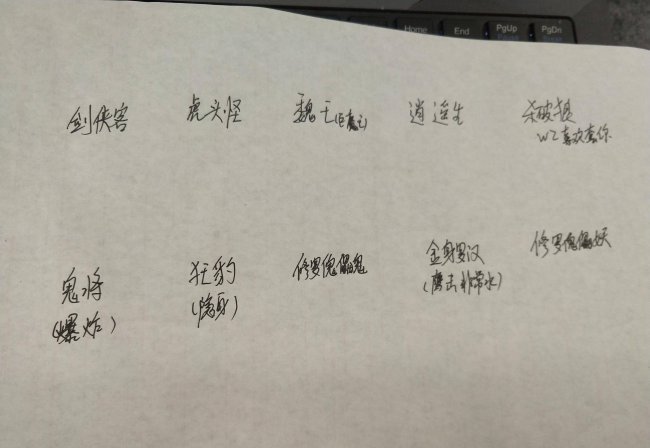 Home End PgUp PgDn
剑侠客 虎头怪 巍王(巨魔王) 逍遥生 杀破狼
WZ喜欢塞你
鬼将 狂豹 修罗傀儡鬼 金身罗汉 修罗傀儡妖
(爆炸) (隐身) (鹰击非常水)